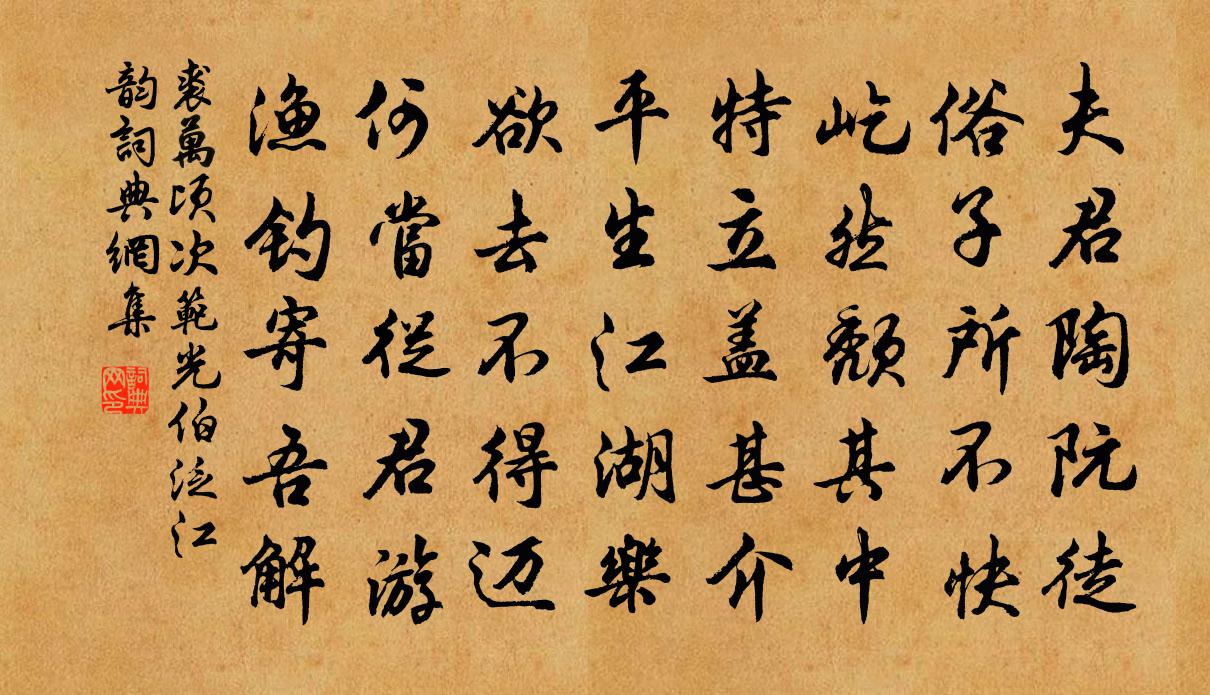 夫君陶阮徒
俗子所不快
屹然颓其中
特立盖甚介
平生江湖樂
欲去不得迈
何當從君游
漁钓寄吾解
裘萬顷次範光伯泛江
韵詞典網集
詞典网印